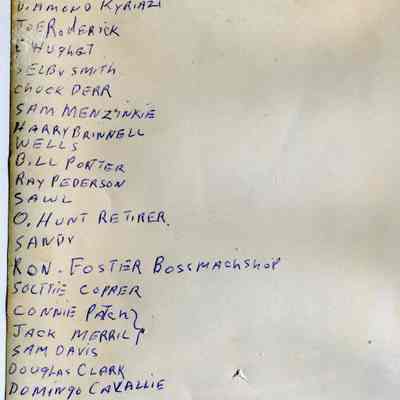 DIAMOND KYRIAZI
JOE RODERICK
HUGHET
SELBY SMITH
CHUCK DERR
SAM MENZINKIE
HARRY BRINNELL
WELLS
BILL PORTER
RAY PEDERSON
SAWL
O. HUNT RETIRER.
SANDY
RON. FOSTER BOSSMACHSHOP
SOLTTIE COPPER
CONNIE PATCH
JACK MERRILL
SAM DAVIS
DOUGLAS CLARK
DOMINGO CAVALLIE